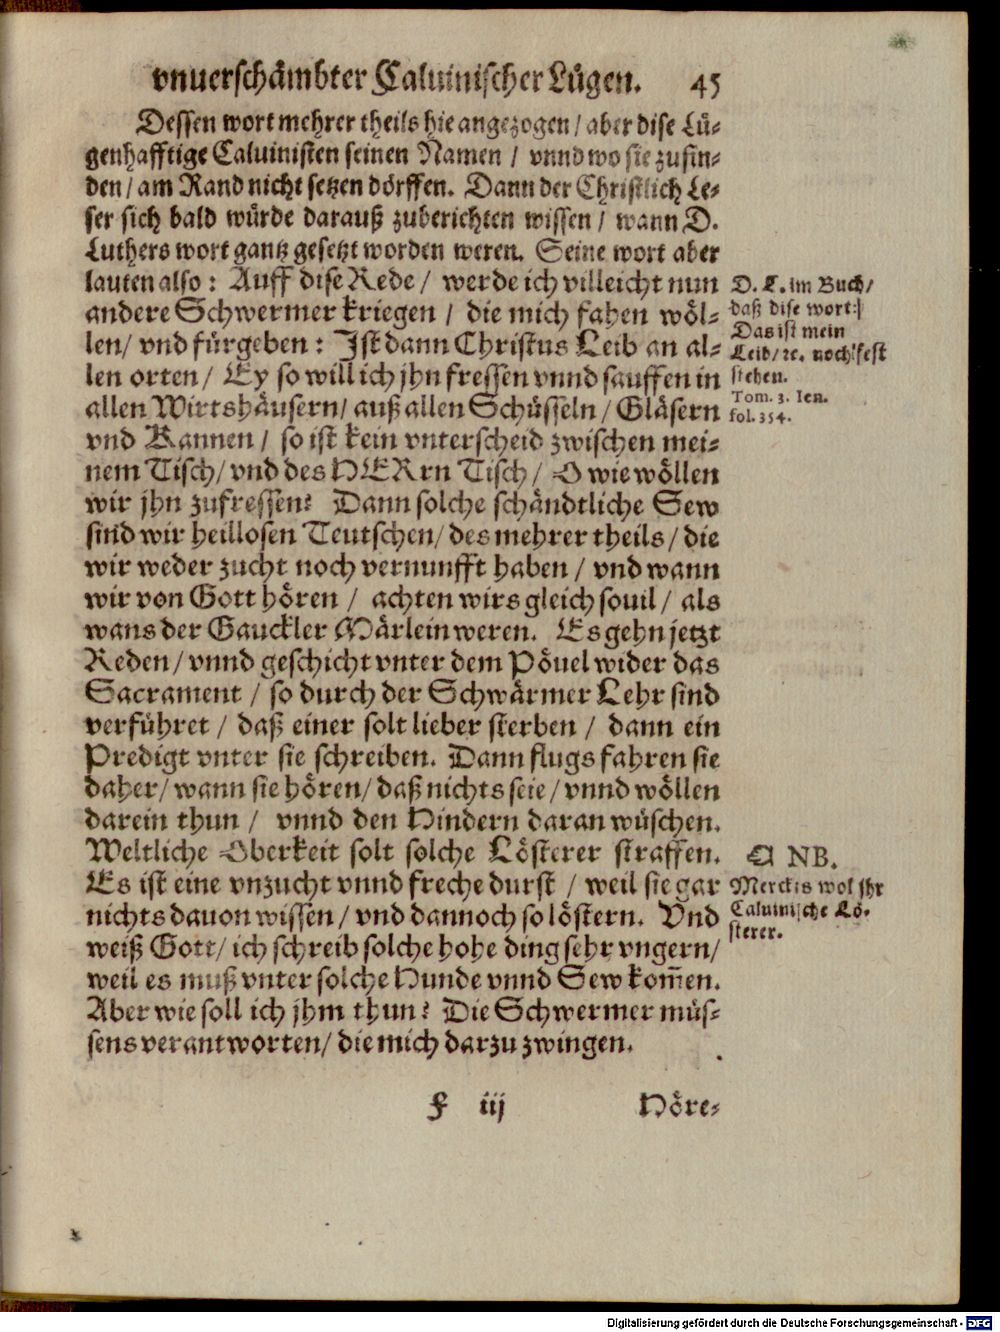 vnuerschämbter Caluinischer Lügen. 45
Dessen wort mehrer theils hie angezogen / aber dise Lü-
genhafftige Caluinisten seinen Namen / vnnd wo sie zufin-
den / am Rand nicht setzen dörffen. Dann der Christlich Le-
ser sich bald würde darauß zuberichten wissen / wann D.
Luthers wort gantz gesetzt worden weren. Seine wort aber
lauten also: Auff dise Rede / werde ich villeicht nun
andere Schwermer kriegen / die mich fahen wöl-
len / vnd fürgeben: Ist dann Christus Leib an al-
len orten / Ey so will ich jhn fressen vnnd sauffen in
allen Wirtshäusern / auß allen Schüsseln / Gläsern
vnd Kannen / so ist kein vnterscheid zwischen mei-
nem Tisch / vnd des HERrn Tisch / O wie wöllen
wir jhn zufressen? Dann solche schändtliche Sew
sind wir heillosen Teutschen / des mehrer theils / die
wir weder zucht noch vernunfft haben / vnd wann
wir von Gott hören / achten wirs gleich souil / als
wans der Gauckler Märlein weren. Es gehn jetzt
Reden / vnnd geschicht vnter dem Pöuel wider das
Sacrament / so durch der Schwärmer Lehr sind
verführet / daß einer solt lieber sterben / dann ein
Predigt vnter sie schreiben. Dann flugs fahren sie
daher / wann sie hören / daß nichts seie / vnnd wöllen
darein thun / vnnd den Hindern daran wüschen.
Weltliche Oberkeit solt solche Lösterer straffen.
Es ist eine vnzucht vnnd freche durst / weil sie gar
nichts dauon wissen / vnd dannoch so löstern. Vnd
weiß Gott / ich schreib solche hohe ding sehr vngern /
weil es muß vnter solche Hunde vnnd Sew kom̃en.
Aber wie soll ich jhm thun? Die Schwermer müs-
sens verantworten / die mich darzu zwingen.
D. L. im Buch /
daß dise wort:
Das ist mein
Leib / ꝛc. noch fest
stehen.
Tom. 3. Ien.
fol. 354.
☜ NB.
Merckts wol jhr
Caluinische Lö-
sterer.
F iij Höre-
Digitalisierung gefördert durch die Deutsche Forschungsgemeinschaft - DFG